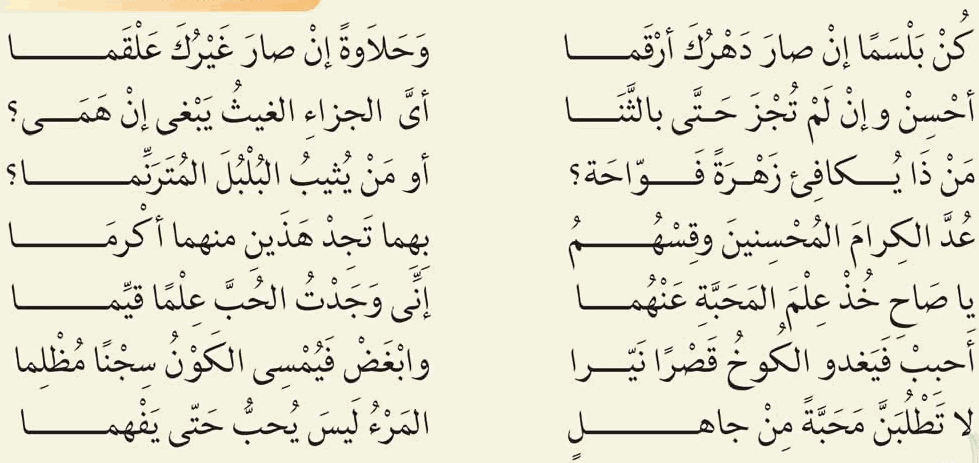 كُنْ بَلْسَمًا إنْ صارَ دَهْرُكَ أرْقَمـــــا وَحَلاَوةً إنْ صارَ غَيْرُكَ عَلْقَمـــــا
أحْسِنْ وإنْ لَمْ تُجْزَ حَـتَّى بالثَّنَـــــا أىَّ الجزاءِ الغيثُ يَبْغى إنْ هَمَـــى؟
مَنْ ذَا يُـــكافِئ زَهْـرَةً فَـــوّاحَة؟ أو مَنْ يُثيبُ البُلْبُلَ المُتَرَنِّمـــــا؟
عُدَّ الكِرامَ المُحْسِنينَ وقِسْهُـــــمُ بِهِما تَجِدْ هَذَينِ منهما أكْرمَـــــا
يا صَاحِ خُذْ عِلْمَ المَحَبَّةِ عَنْهُمـــا إنِّى وَجَدْتُ الحُبَّ عِلْمًا قيِّمـــــا
أَحبِبْ فَيَغدو الكوخُ قَصْرًا نَيّـــرا وابْغَضْ فَيُمْسِى الكَوْنُ سِجْنًا مُظْلِما
لا تَطْلُبَنَّ مَحَبَّةً مِنْ جاهـــــلٍ المَرْءُ لَيسَ يُحبُّ حَتّى يَفْهمـــــا